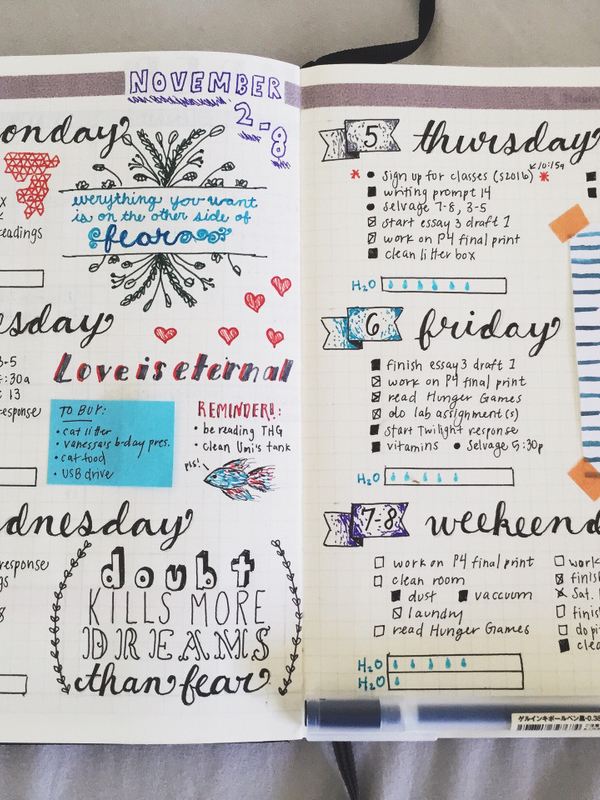 NOVEMBER
2-8
onday
x
readings
everything you want
is on the other side of
fear
sday
3-5
:30a
13
response
Love is eternal
TO BUY:
• cat litter
• vanessa's b-day pres.
• cat food
• USB drive
REMINDER!!:
• be reading THG
• clean Umi's tank
pls!
dnesday
response
gs
8
doubt
KILLS MORE
DREAMS
than fear
5 thursday
10:15a
* • sign up for classes (S2016) *
writing prompt 14
• selvage 7-8, 3-5
start essay 3 draft 1
work on P4 final print
clean litter box
H2O
6 friday
finish essay 3 draft 1
work on P4 final print
read Hunger Games
do lab assignment(s)
start Twilight response
vitamins • Selvage 5:30p
H2O
7-8 weekend
work on P4 final print
clean room
dust vaccuum
laundry
read Hunger Games
work
finish
Sat.
finish
do pi
clea
H2O
H2O
ゲルインキボールペン黒・0.38